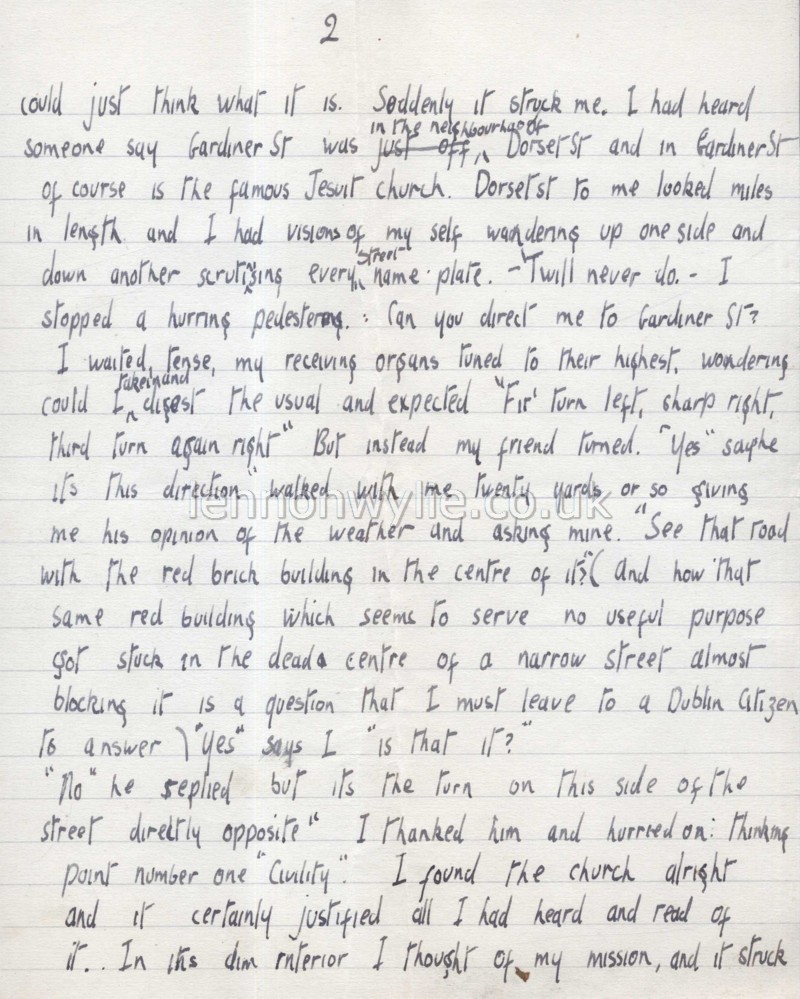 2
could just think what it is. Soddenly it struck me. I had heard
in the neighbourhood of
someone say Gardiner St was just off ^ Dorset St and in Gardiner St
of course is the famous Jesuit church. Dorset st to me looked miles
in length and I had visions of my self wandering up one side and
street
down another scrutising every ^ name plate. - 'Twill never do. - I
stopped a hurring pedestering. : Can you direct me to Gardiner St?
I waited, tense, my receiving organs tuned to their highest, wondering
take in and
could I ^ digest the usual and expected "Fir' turn left, sharp right,
third turn again right" But instead my friend turned. "Yes" say he
its this direction" walked with me twenty yards or so giving
lennonwylie.co.uk
me his opinion of the weather and asking mine. "See that road
with the red brick building in the centre of it?" (and how that
same red building which seems to serve no useful purpose
got stuck in the dead centre of a narrow street almost
blocking it is a question that I must leave to a Dublin Citizen
to answer ) "Yes" says I "is that it?"
"No" he replied but its the turn on this side of the
street directly opposite" I thanked him and hurried on: thinking
point number one "Civility". I found the church alright
and it certainly justified all I had heard and read of
it.. In its dim interior I thought of my mission, and it struck